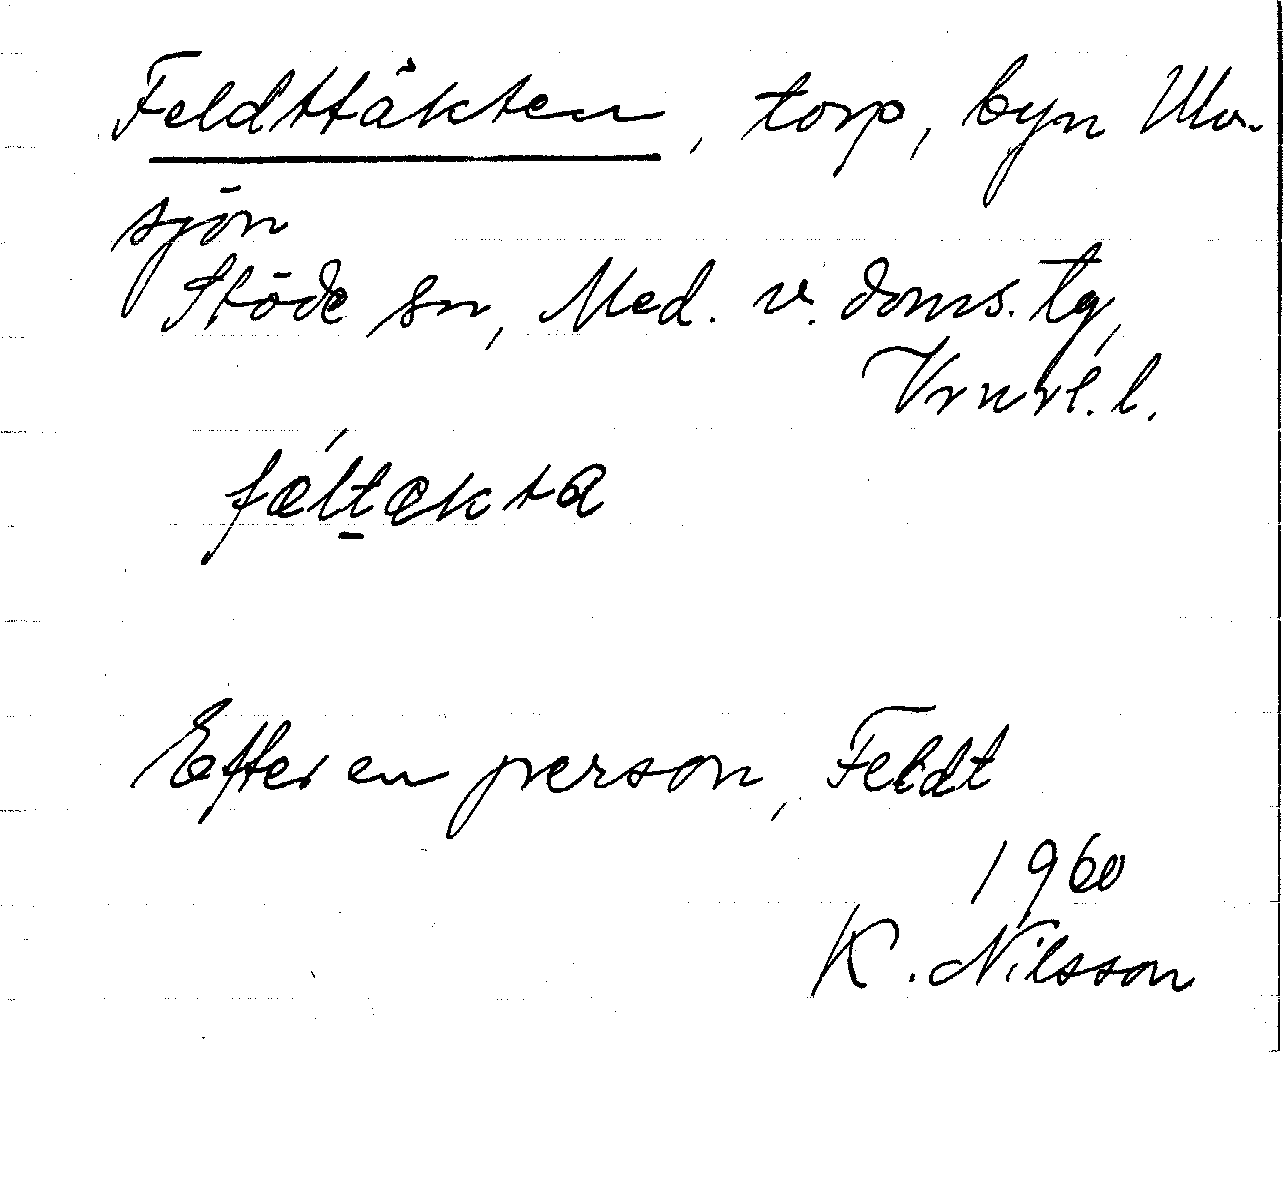 Feldttäkten, torp, byn Ulv-
sjön
Stöde sn, Med. v. doms. tg,
Vrnrl. l.
fæ´ltækta
Efter en person, Feldt
1960
K. Nilsson